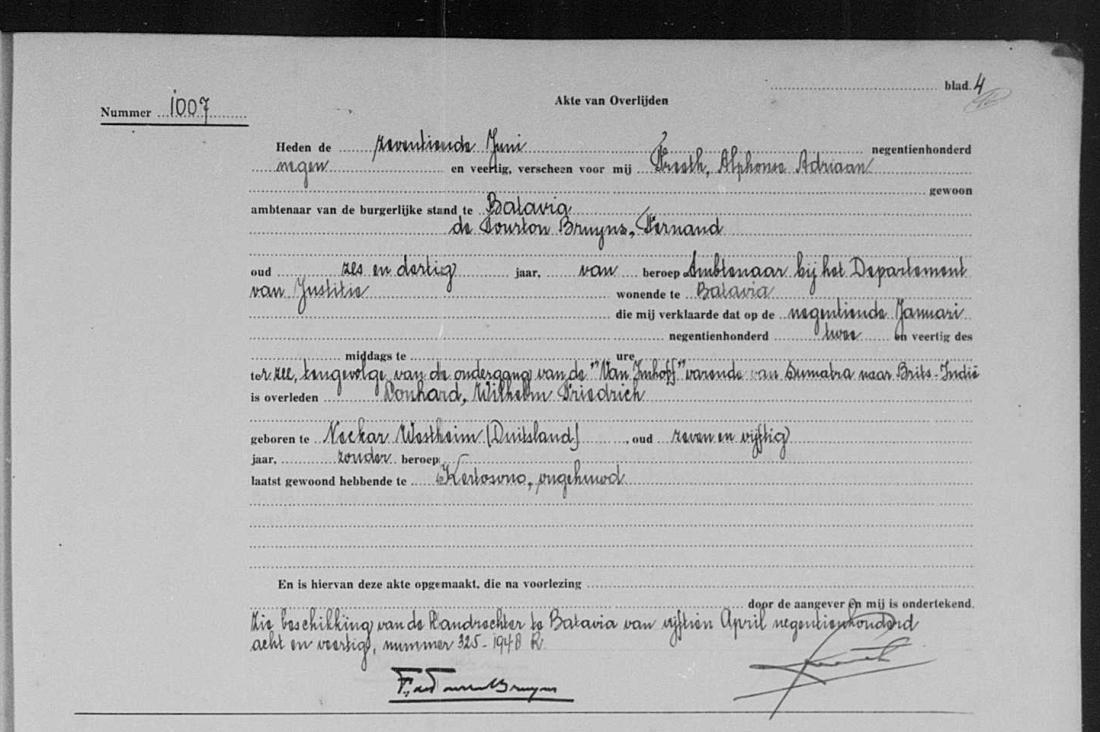 blad. 4
Akte van Overlijden
Nummer 1007
Heden de zeventiende Juni negentienhonderd
negen en veertig, verscheen voor mij Treeth, Alphonse Adriaan
gewoon
ambtenaar van de burgerlijke stand te Batavia
de Tourton Bruyns, Fernand
oud zes en dertig jaar, van beroep Ambtenaar bij het Departement
van Justitie wonende te Batavia
die mij verklaarde dat op de negentiende Januari
negentienhonderd twee en veertig des
middags te ure
ter zee, tengevolge van de ondergang van de "Van Imhoff" varende van Sumatra naar Brits-Indië
is overleden Donhard, Wilhelm Friedrich
geboren te Neckar Westheim (Duitsland), oud zeven en vijftig
jaar, zonder beroep
laatst gewoond hebbende te Kertosono, ongehuwd
En is hiervan deze akte opgemaakt, die na voorlezing
door de aangever en mij is ondertekend.
Zie beschikking van de Landrechter te Batavia van vijftien April negentienhonderd
acht en veertig, nummer 325-1948 R.
F. de Tourton Bruyns